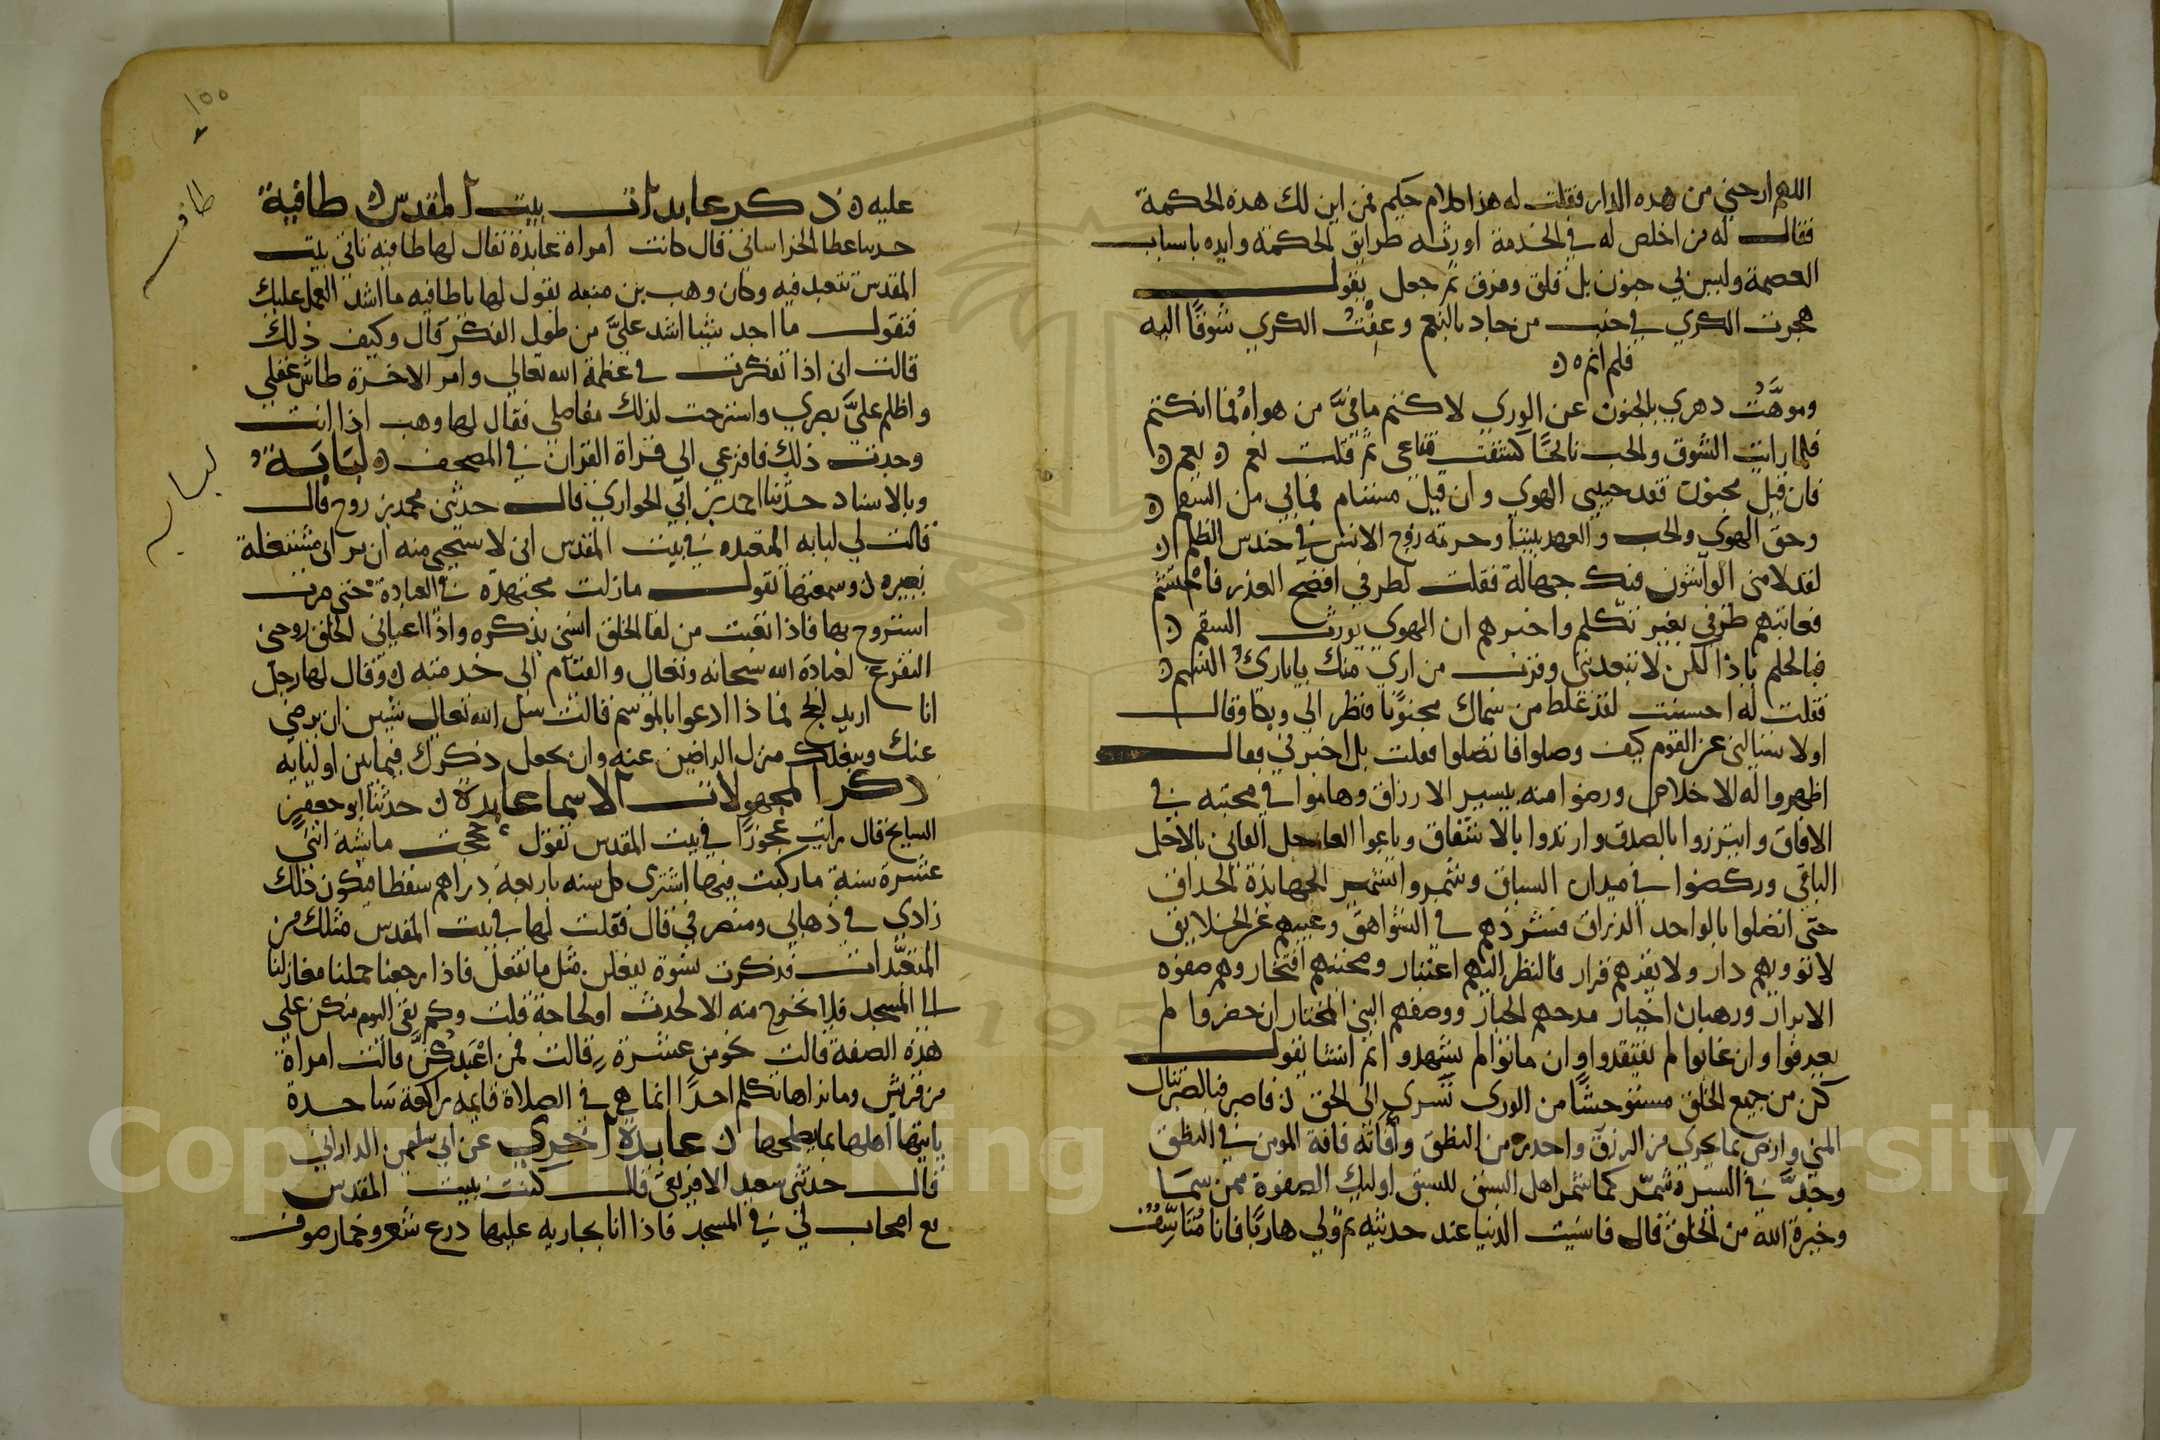 اللهم ارحني من هذه الدار فقلت له هذا كلام حكيم فمن اين لك هذه الحكمة
فقال له من اخلص له في الخدمة اورثه طرايق الحكمة وايده باسباب
العصمة وليس بي جنون بل قلق وفرق ثم جعل يقول
هجرت الكري في حب من جاد بالنعم وعفت الكري شوقا اليه
فلم انم
وموهت دهري بالجنون عن الوري لاكتم ما في من هواه فما انكتم
فلما رايت الشوق والحب بايحا كشفت قناعي ثم قلت نعم نعم
فان قيل مجنون فقد جنني الهوي وان قيل مسقام فما بي من السقم
وحق الهوي والحب والعهد بيننا وحرمة روح الانس في حندس الظلم
لقد لامني الواشون فيك جهالة فقلت لطرفي افضح العذر فاحتشم
فعاتبهم طرفي بغير تكلم واخبرهم ان الهوي يورث السقم
فبالحلم ياذا المن لا تبعدني وقرب من اري منك يا باري النسم
فقلت له احسنت لقد غلط من سماك مجنونا فنظر الي وبكا وقال
اولا تسالني عن القوم كيف وصلوا فاتصلوا فقلت بل اخبرني فقال
اظهروا له الاخلاص ورضوا منه بيسير الارزاق وهاموا في محبته في
الافاق واتزروا بالصدق وارتدوا بالاشفاق وباعوا العاجل الفاني بالاجل
الباقي وركضوا في ميدان السباق وشمروا تشمير الجهابذة الحذاق
حتى اتصلوا بالواحد الرزاق فشردهم في الشواهق وغيبهم عن الخلايق
لا توويهم دار ولا يقرهم قرار فالنظر اليهم اعتبار ومحبتهم افتخار وهم صفوه
الابرار ورهبان اخيار مدحهم الجبار ووصفهم النبي المختار ان حضروا لم
يعرفوا وان غابوا لم يفتقدوا وان ماتوا لم يشهدوا ثم انشا يقول
كن من جميع الخلق مستوحشا من الوري تسري الى الحق فاصبر فبالصبر تنال
المني وارض بما يجري من الرزق واحذر من النطق وآفاته فافة المومن في النطق
وجد في السير وشمر كما شمر اهل السبق للسبق اوليك الصفوة ممن سما
وخيرة الله من الخلق قال فانسيت الدنيا عند حديثه ثم ولي هاربا فانا متاسف
١٥٥
عليه ذكر عابدات بيت المقدس طافية
حدثنا عطا الخراساني قال كانت امراة عابدة يقال لها طافيه تاتي بيت
المقدس تتعبد فيه وكان وهب بن منبه يقول لها يا طافيه ما اشد العمل عليك
فتقول ما اجد شيا اشد علي من طول الفكر قال وكيف ذلك
قالت اني اذا تفكرت في عظمة الله تعالي وامر الاخرة طاش عقلي
واظلم علي بصري واسترخت لذلك مفاصلي فقال لها وهب اذا انت
وجدت ذلك فافزعي الى قراة القران في المصحف لبابة
وبالاسناد حدثنا احمد بن ابي الحواري قال حدثني محمد بن روح قال
قالت لي لبابه المتعبده في بيت المقدس اني لاستحيي منه ان يراني مشتغلة
بغيره وسمعتها تقول ما زلت مجتهدة في العبادة حتى صرت
استروح بها فاذا تعبت من لقا الخلق انسني بذكره واذا اعياني الخلق روحني
التفرغ لعبادة الله سبحانه وتعالي والقيام الى خدمته وقال لها رجل
انا اريد الحج فماذا ادعوا بالموسم قالت سل الله تعالي شيين ان يرضي
عنك ويبلغك منزل الراضين عنه وان يجعل ذكرك فيما بين اوليايه
ذكر المجهولات الاسما عابدة حدثنا ابو جعفر
السايح قال رايت عجوزا في بيت المقدس تقول حججت ماشية اثنتي
عشرة سنة ما ركبت فيها اشتري كل سنه باربعة دراهم سفطا فيكون ذلك
زادي في ذهابي ومنصرفي قال فقلت لها في بيت المقدس مثلك من
المتعبدات فذكرت نسوة يفعلن مثل ما تفعل فاذا رجعنا حملنا مغازلنا
الى المسجد فلا نخرج منه الا لحدث او لحاجة قلت وكم بقي اليوم منكن علي
هذه الصفة قالت نحو من عشرة قالت فمن اعبدكن قالت امراة
من قريش وما نراها تكلم احدا انما هي في الصلاة قايمة راكعة ساجدة
ياتيها اهلها بما يصلحها عابدة اخري عن ابي سليمن الداراني
قال حدثني سعيد الافريقي قال كنت ببيت المقدس
مع اصحاب لي في المسجد فاذا انا بجاريه عليها درع شعر وخمار صوف
طافيه
لبابه
Copyright © King Saud University
1957